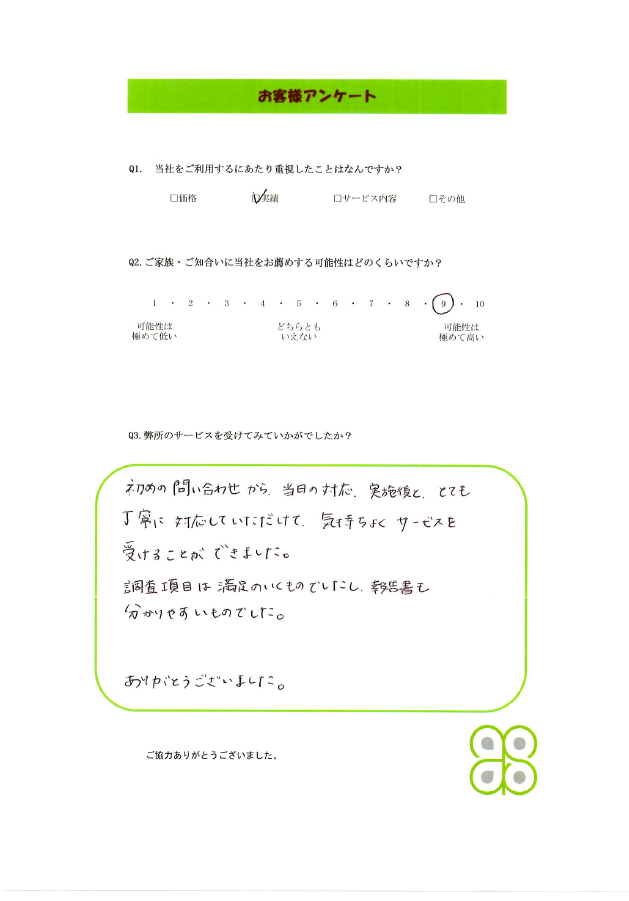 お客様アンケート
Q1. 当社をご利用するにあたり重視したことはなんですか？
□価格 □実績 □サービス内容 □その他
Q2.ご家族・ご知合いに当社をお薦めする可能性はどのくらいですか？
1 ・ 2 ・ 3 ・ 4 ・ 5 ・ 6 ・ 7 ・ 8 ・ 9 ・ 10
可能性は どちらとも 可能性は
極めて低い いえない 極めて高い
Q3.弊所のサービスを受けてみていかがでしたか？
初めの問い合わせから、当日の対応、実施後と、とても
丁寧に対応していただけて、気持ちよくサービスを
受けることができました。
調査項目は満足のいくものでしたし、報告書も
分かりやすいものでした。
ありがとうございました。
ご協力ありがとうございました。